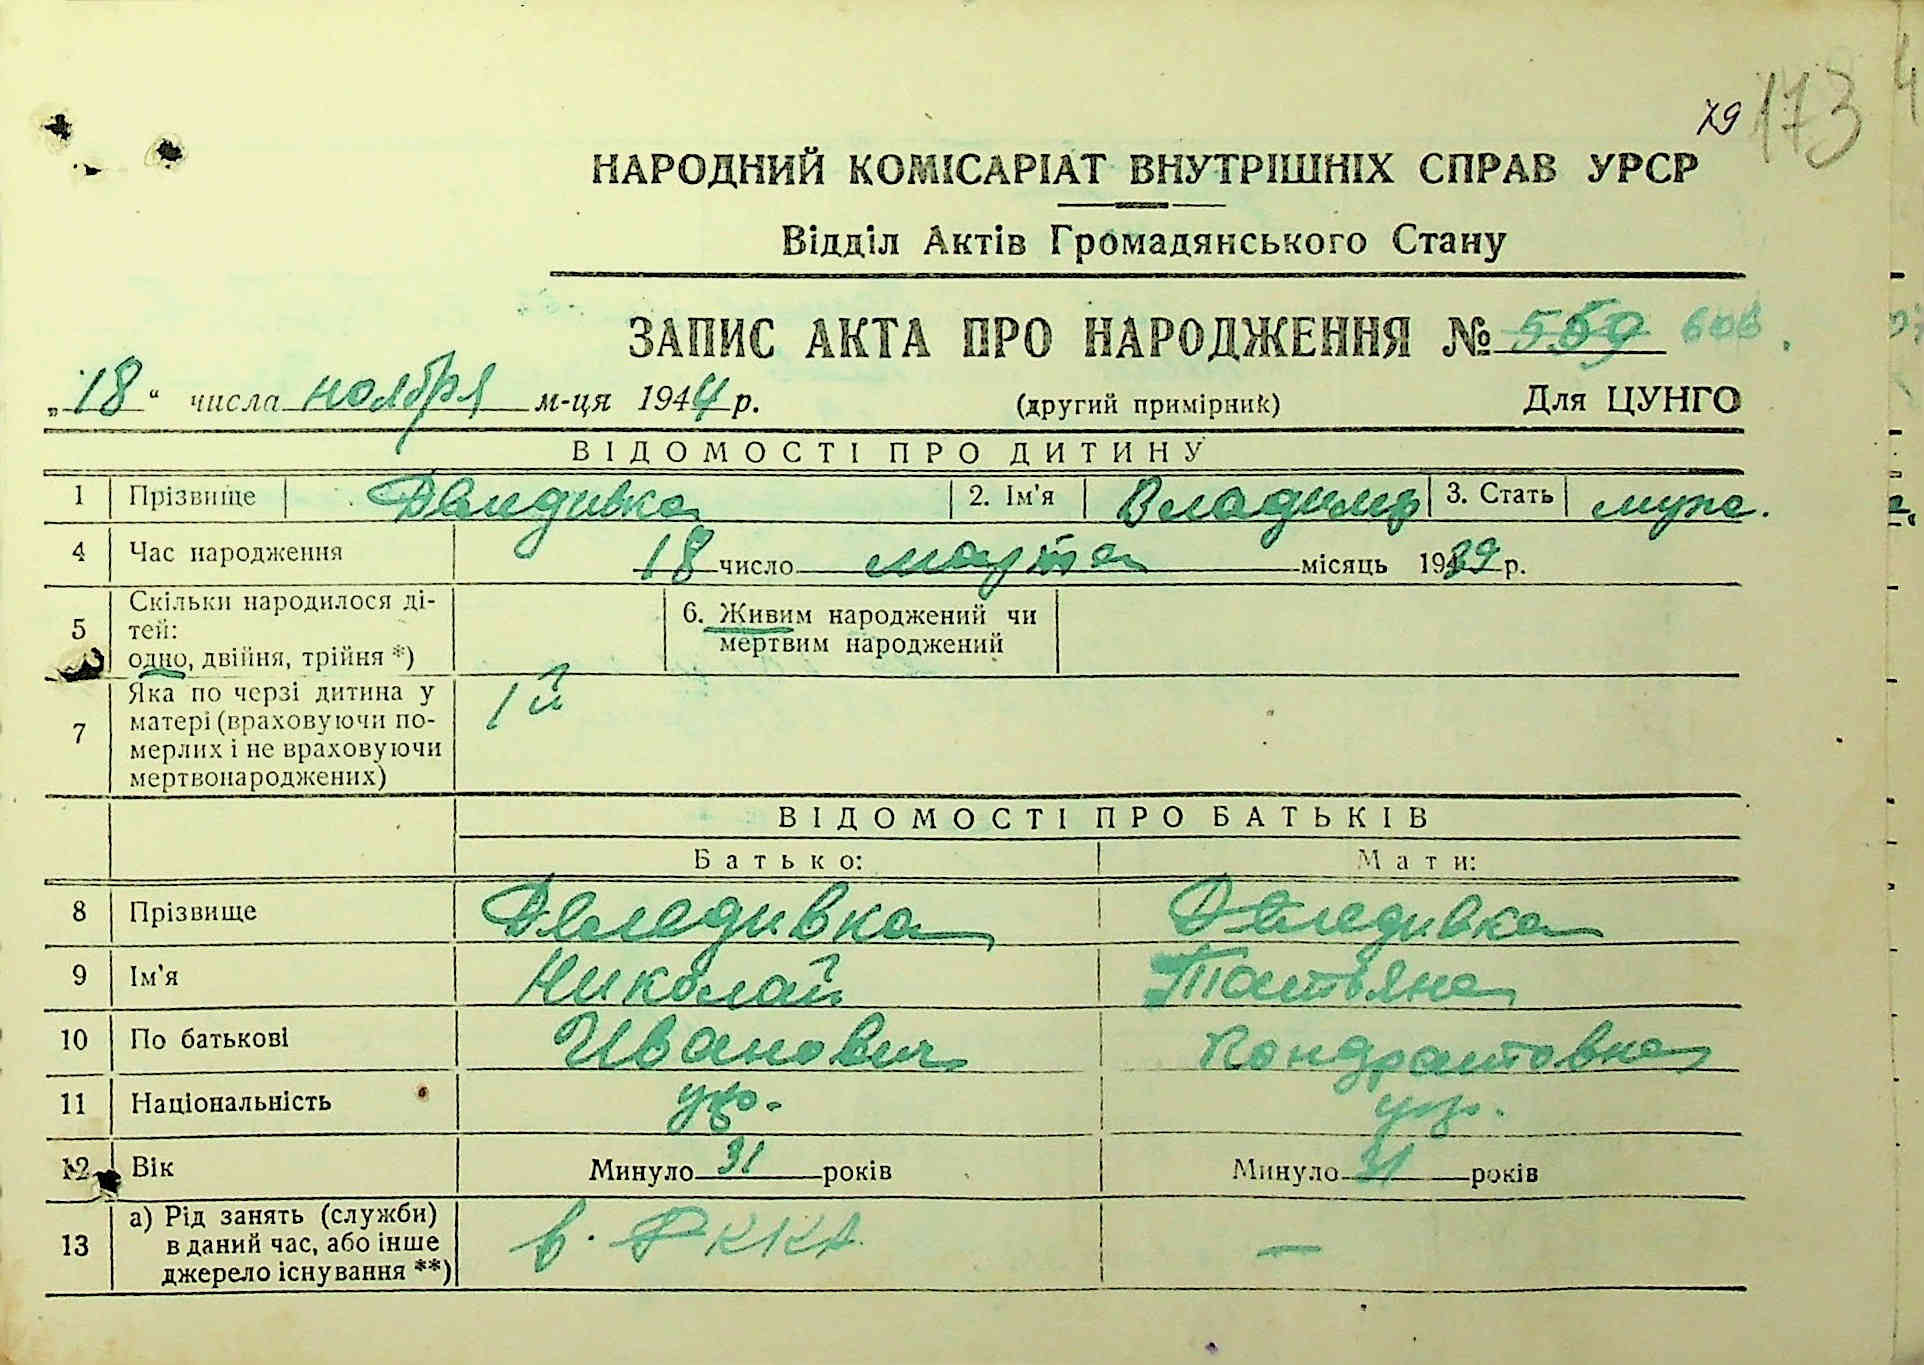 79 173
НАРОДНИЙ КОМІСАРІАТ ВНУТРІШНІХ СПРАВ УРСР
Відділ Актів Громадянського Стану
ЗАПИС АКТА ПРО НАРОДЖЕННЯ № 559 608
„18“ числа ноября м-ця 1944 р. (другий примірник) Для ЦУНГО
ВІДОМОСТІ ПРО ДИТИНУ
1 Прізвище 2. Ім'я Владимир 3. Стать муж.
4 Час народження 18 число марта місяць 1939 р.
5 Скільки народилося ді-
тей:
одно, двійня, трійня *)
6. Живим народжений чи
мертвим народжений
7 Яка по черзі дитина у
матері (враховуючи по-
мерлих і не враховуючи
мертвонароджених)
1й
ВІДОМОСТІ ПРО БАТЬКІВ
Батько: Мати:
8 Прізвище
9 Ім'я Николай Татьяна
10 По батькові Иванович Кондратовна
11 Національність укр. укр.
12 Вік Минуло 31 років Минуло 31 років
13 а) Рід занять (служби)
в даний час, або інше
джерело існування **)
в. РККА —